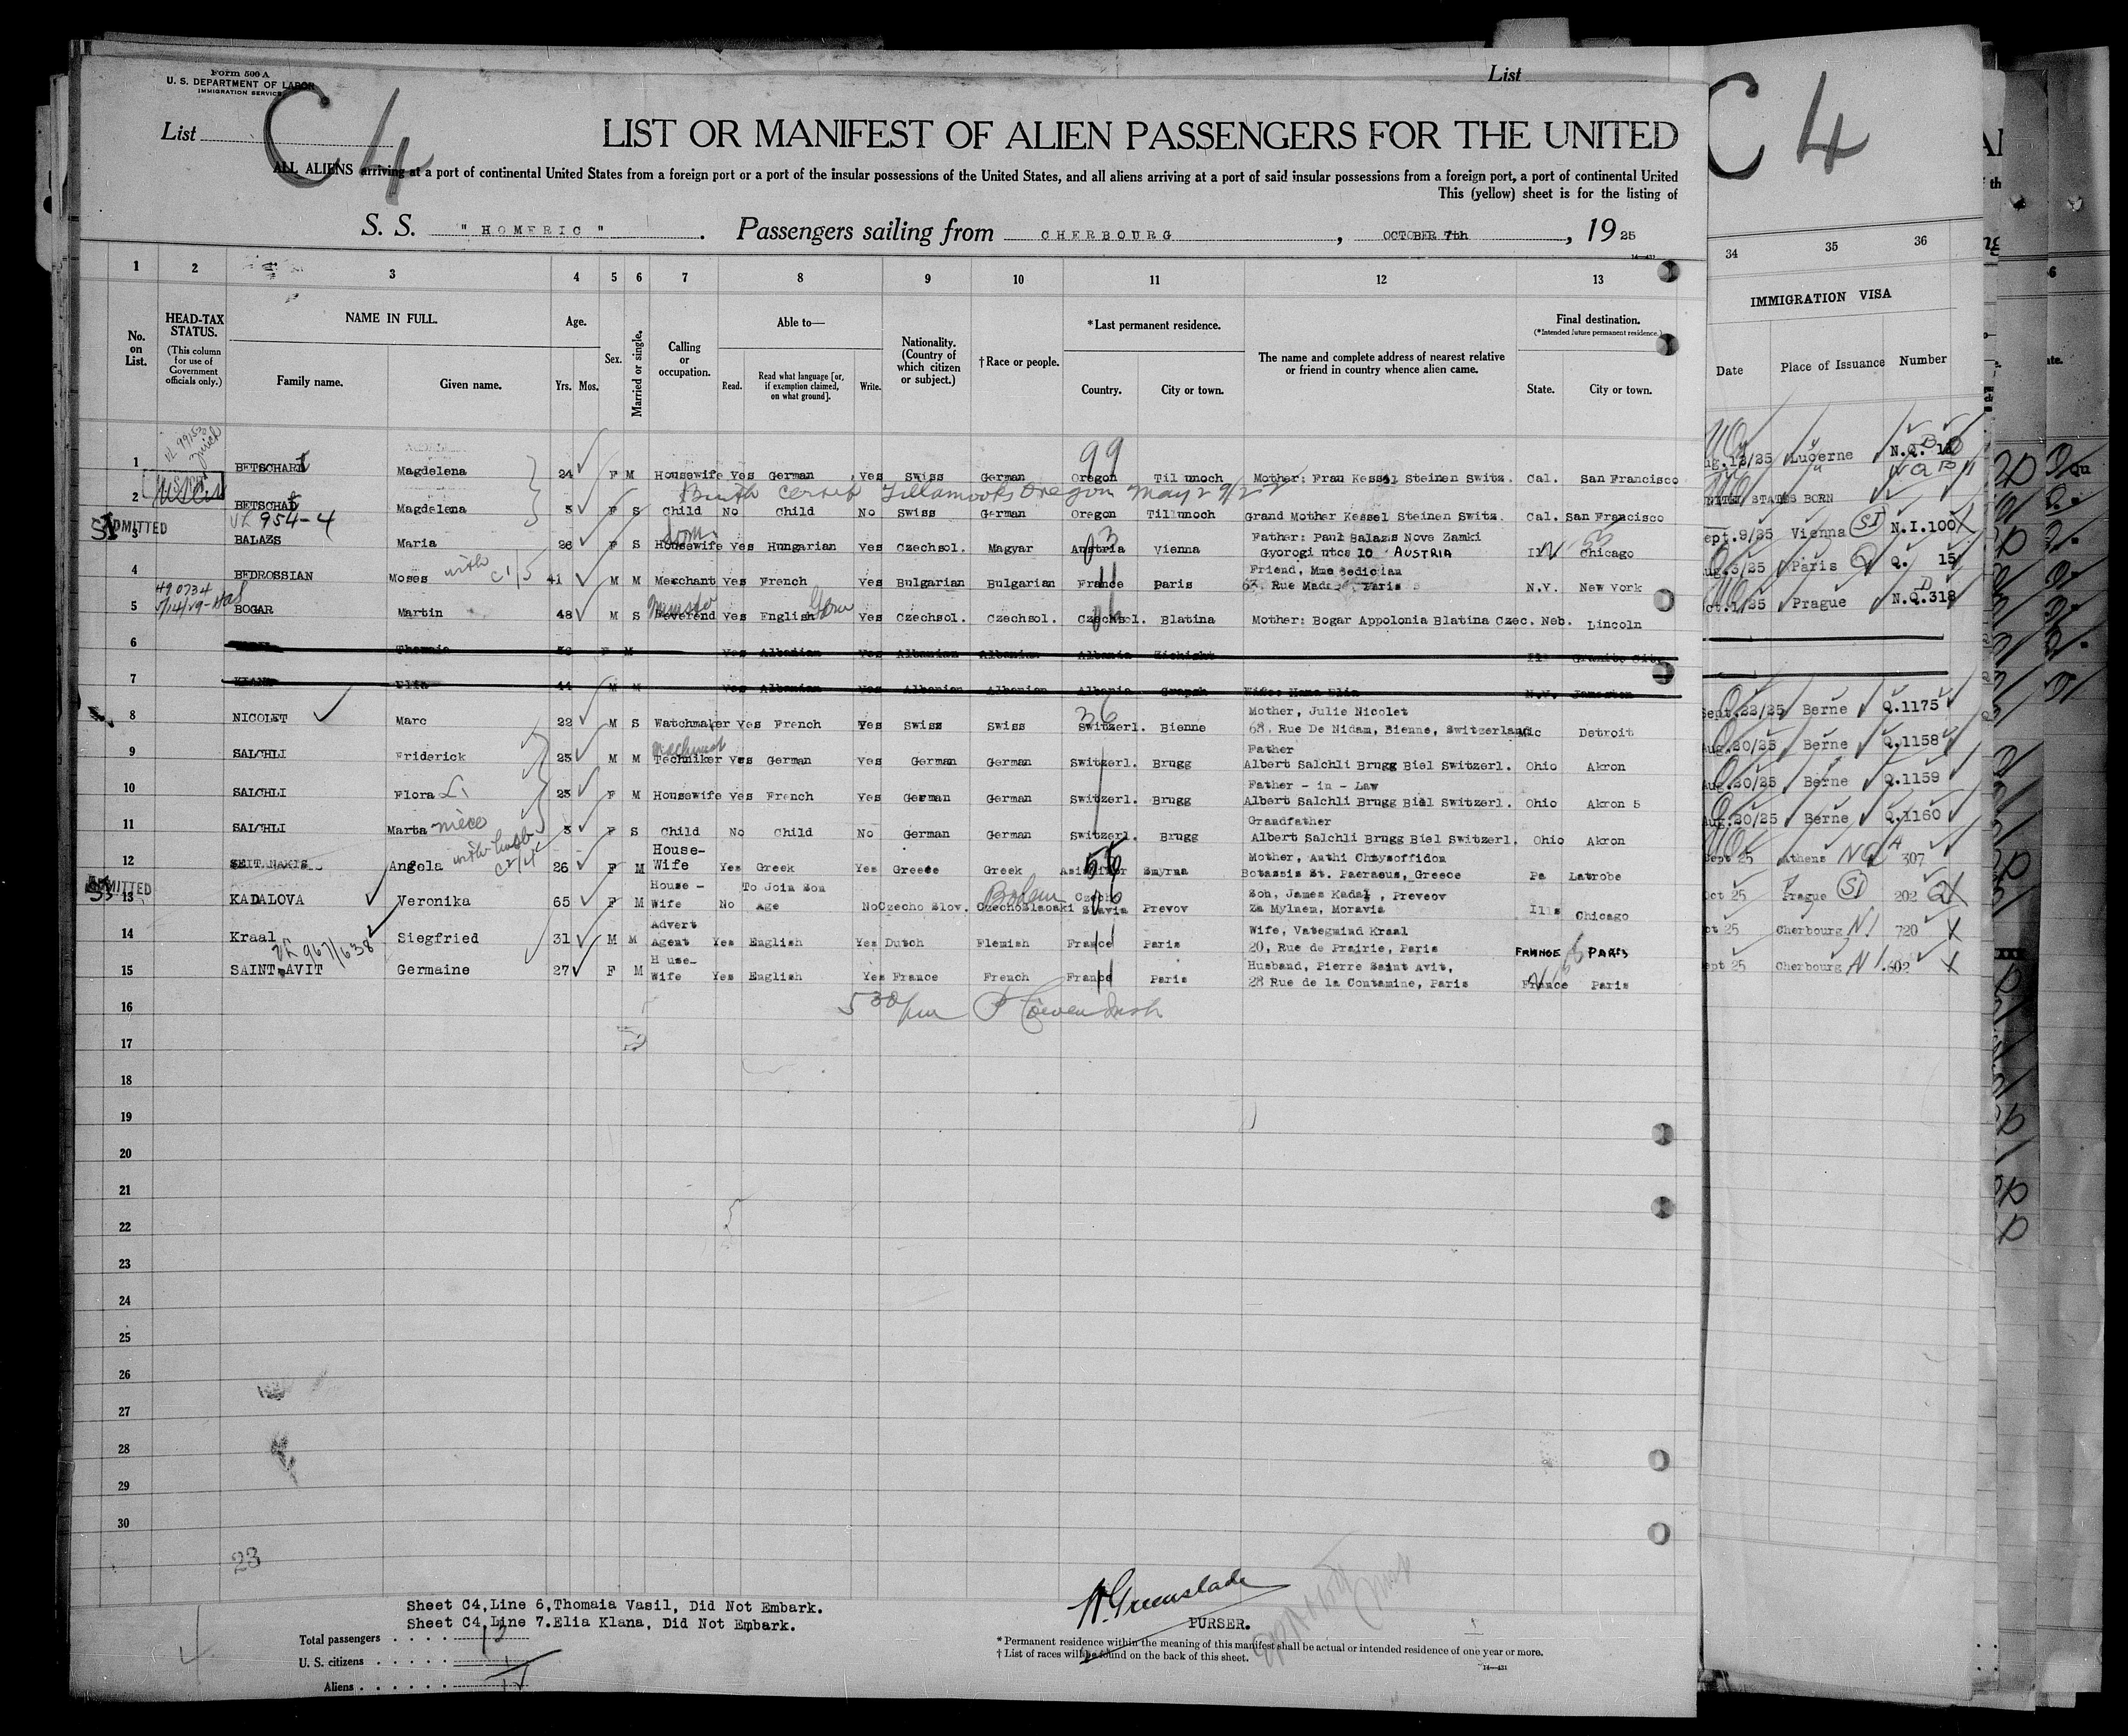 Form 500 A
U. S. DEPARTMENT OF LABOR
IMMIGRATION SERVICE
List
List
C 4
C 4
LIST OR MANIFEST OF ALIEN PASSENGERS FOR THE UNITED
ALL ALIENS arriving at a port of continental United States from a foreign port or a port of the insular possessions of the United States, and all aliens arriving at a port of said insular possessions from a foreign port, a port of continental United
This (yellow) sheet is for the listing of
S. S. "HOMERIC". Passengers sailing from CHERBOURG, OCTOBER 7th, 1925
1 2 3 4 5 6 7 8 9 10 11 12 13 34 35 36
No. on List.
HEAD-TAX STATUS.
(This column for use of Government officials only.)
NAME IN FULL.
Family name. Given name.
Age.
Yrs. Mos.
Sex.
Married or single.
Calling or occupation.
Able to—
Read. Read what language [or, if exemption claimed, on what ground]. Write.
Nationality. (Country of which citizen or subject.)
†Race or people.
*Last permanent residence.
Country. City or town.
The name and complete address of nearest relative or friend in country whence alien came.
Final destination.
(*Intended future permanent residence.)
State. City or town.
IMMIGRATION VISA
Date Place of Issuance Number
99
1 BETSCHART Magdelena 24 F M Housewife Yes German Yes Swiss German Oregon Til unoch Mother: Frau Kessel Steinen Switz. Cal. San Francisco ug.12/25 Lucerne N.Q.
Birth Tillamook Oregon May 29/22
2 BETSCHAT Magdelena 3 F S Child No Child No Swiss German Oregon Tillunoch Grand Mother Kessel Steinen Switz. Cal. San Francisco NITED STATES BORN
954-4
ADMITTED
3 BALAZS Maria 26 F S Housewife Yes Hungarian Yes Czechsol. Magyar Austria Vienna Father: Paul Balazs Nove Zamki Gyorogi utca 10 AUSTRIA Ill Chicago ept.9/25 Vienna SI N.I.100
4 BEDROSSIAN Moses with C 1/5 41 M M Merchant Yes French Yes Bulgarian Bulgarian France Paris Friend, Mme Bedician 63. Rue Paris N.Y. New York ug.5/25 Paris Q. 15
490734
5/14/29
5 BOGAR Martin 48 M S Reverend Yes English Yes Czechsol. Czechsol. Czechsol. Blatina Mother: Bogar Appolonia Blatina Czec. Neb. Lincoln ct.1/25 Prague N.Q.318
6 Thomaia F M Yes Albanian Yes Albanian Albanian Albania Ill Granite City
7 KLANA Elia 44 M M Yes Albanian Yes Albanian Albanian Albania Grapsh N.Y.
36
8 NICOLET Marc 22 M S Watchmaker Yes French Yes Swiss Swiss Switzerl. Bienne Mother, Julie Nicolet 68. Rue De Nidam, Bienne, Switzerland Mic Detroit Sept.22/25 Berne Q.1175
machinist
9 SALCHLI Friderick 25 M M Techniker Yes German Yes German German Switzerl. Brugg Father Albert Salchli Brugg Biel Switzerl. Ohio Akron Aug.20/25 Berne Q.1158
10 SALCHLI Flora 25 F M Housewife Yes French Yes German German Switzerl. Brugg Father - in - Law Albert Salchli Brugg Biel Switzerl. Ohio Akron Aug.20/25 Berne Q.1159
11 SALCHLI Marta niece 3 F S Child No Child No German German Switzerl. Brugg Grandfather Albert Salchli Brugg Biel Switzerl. Ohio Akron Aug.20/25 Berne Q.1160
12 SEITANAKIS Angela with husb C2/4 26 F M House-Wife Yes Greek Yes Greece Greek Asi Minor Smyrna Mother, Anthi Chrysoffidon Botassis St. Paeraeus, Greece Pa Latrobe Sept 25 Athens NQ 307
ADMITTED
13 KADALOVA Veronika 65 F M House-Wife No To Join Son Age No Czecho Slov. Czechoslaoaki Bohem Czecho Slavia Prevov Son, James Kadal, Preveov Za Mylnem, Moravia Ills Chicago Oct 25 Prague SI 202
14 Kraal Siegfried 31 M M Advert Agent Yes English Yes Dutch Flemish France Paris Wife, Vategmind Kraal 20, Rue de Prairie, Paris FRANCE PARIS ct 25 Cherbourg NI 720
967/638
15 SAINT AVIT Germaine 27 F M H use-Wife Yes English Yes France French France Paris Husband, Pierre Saint Avit, 28 Rue de la Contamine, Paris France Paris ept 25 Cherbourg NI.602
16 530 pm
17
18
19
20
21
22
23
24
25
26
27
28
29
30
23
Sheet C4, Line 6, Thomaia Vasil, Did Not Embark.
Sheet C4, Line 7. Elia Klana, Did Not Embark.
Total passengers 13
U. S. citizens 1
Aliens
H. Greenslade
PURSER.
* Permanent residence within the meaning of this manifest shall be actual or intended residence of one year or more.
† List of races will be found on the back of this sheet.
14—431